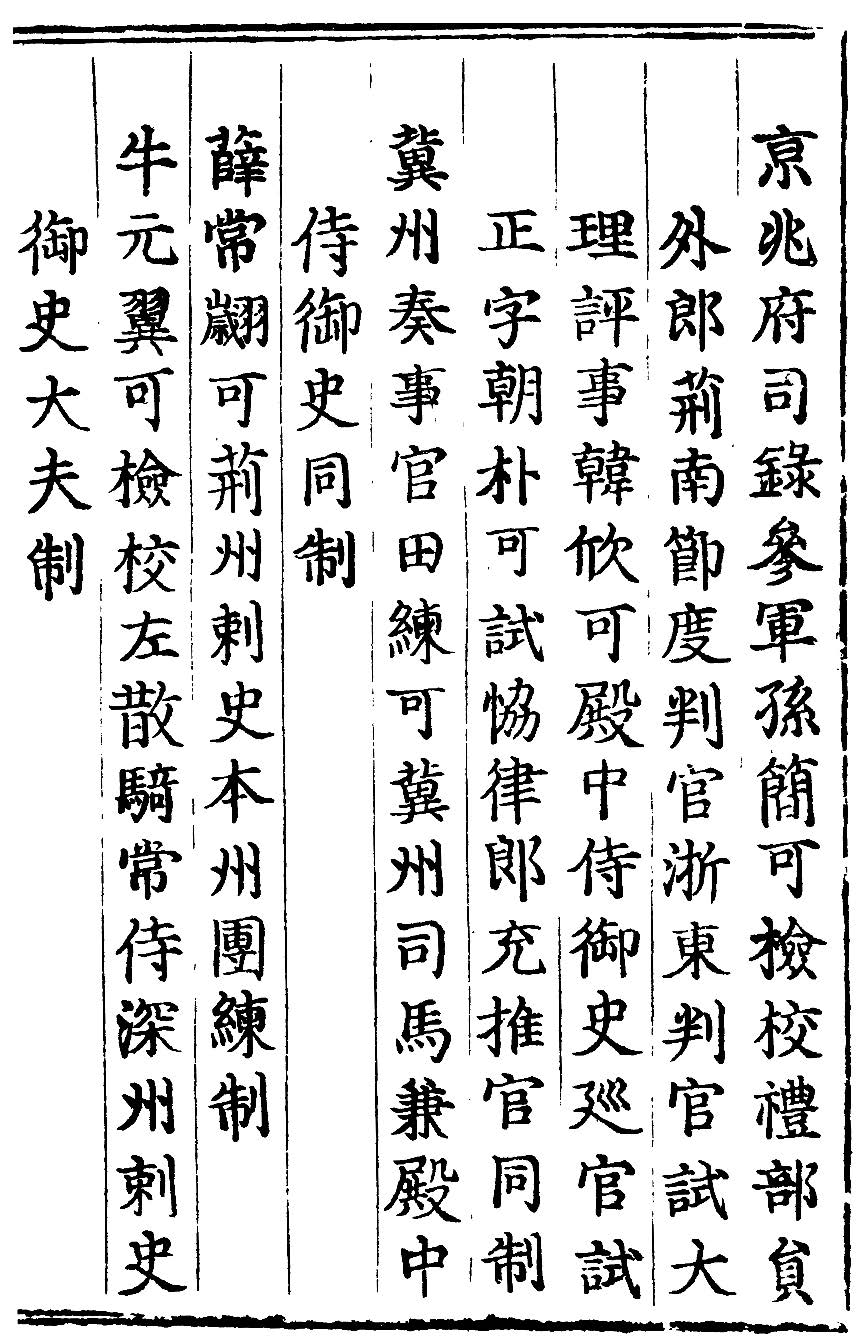 京兆府司錄參軍孫簡可檢校禮部貟
外郎荊南節度判官浙東判官試大
理評事韓佽可殿中侍御史廵官試
正字朝朴可試恊律郎充推官同制
冀州奏事官田練可冀州司馬兼殿中
侍御史同制
薛常翽可荊州刺史本州團練制
牛元翼可檢校左散騎常侍深州刺史
御史大夫制